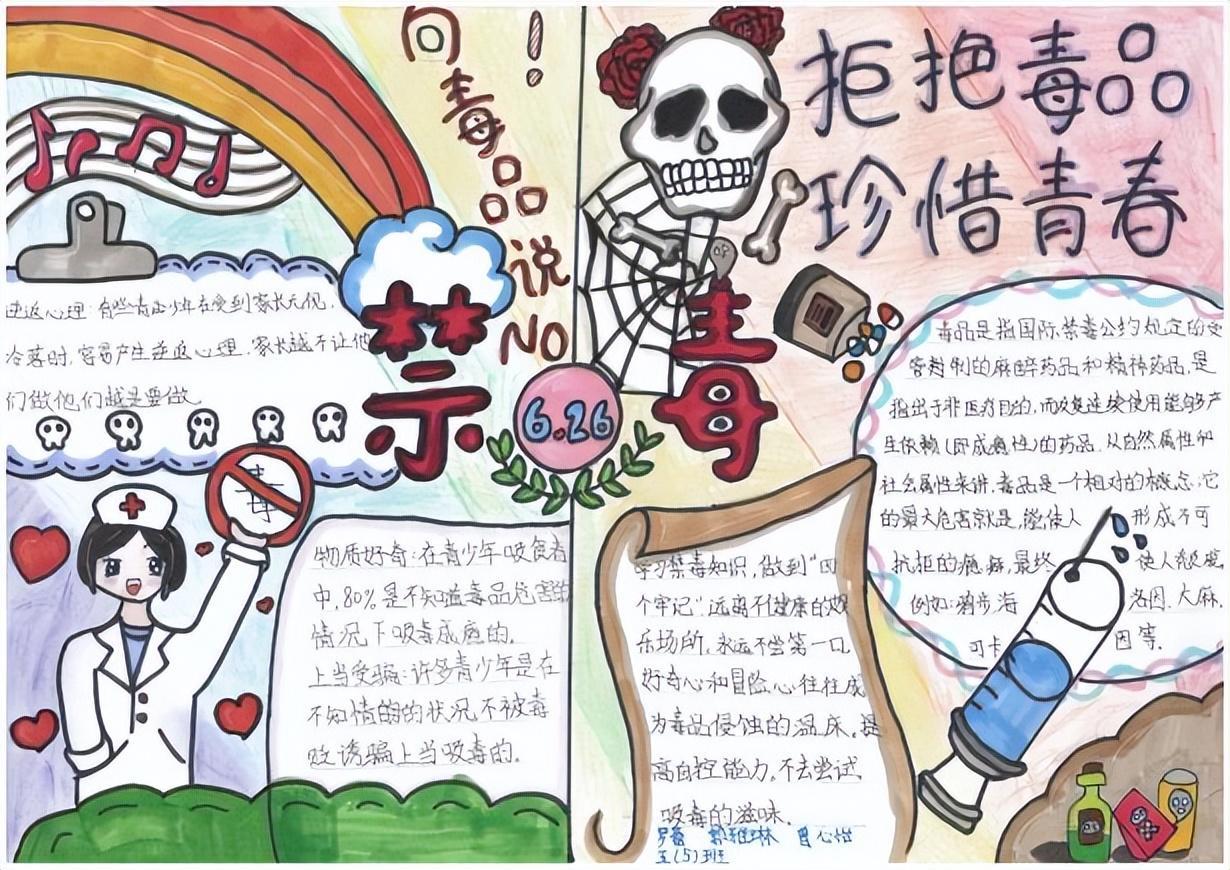 向毒品说NO!
拒把毒品
珍惜青春
禁毒
6.26
逆返心理:有些青少年在受到家长忽视,
冷落时,容易产生逆返心理,家长越不让他
们做他们越是要做
毒
物质好奇:在青少年吸食者
中,80%是不知道毒品危害的
情况下吸毒成瘾的.
上当受骗:许多青少年是在
不知情的的状况不被毒
贩诱骗上当吸毒的.
学习禁毒知识,做到"四
个牢记".远离不健康的娱
乐场所,永远不尝第一口,
好奇心和冒险心往往成
为毒品侵蚀的温床,提
高自控能力,不去尝试
吸毒的滋味.
五(5)班
毒品是指国际禁毒公约规定的受
管制的麻醉药品和精神药品,是
指出于非医疗目的,而反复连续使用能够产
生依赖(即成瘾性)的药品.从自然属性和
社会属性来讲,毒品是一个相对的概念,它
的最大危害就是,能使人 形成不可
抗拒的瘾癖,最终 使人
例如: 海 洛因.大麻,
可卡 因等.